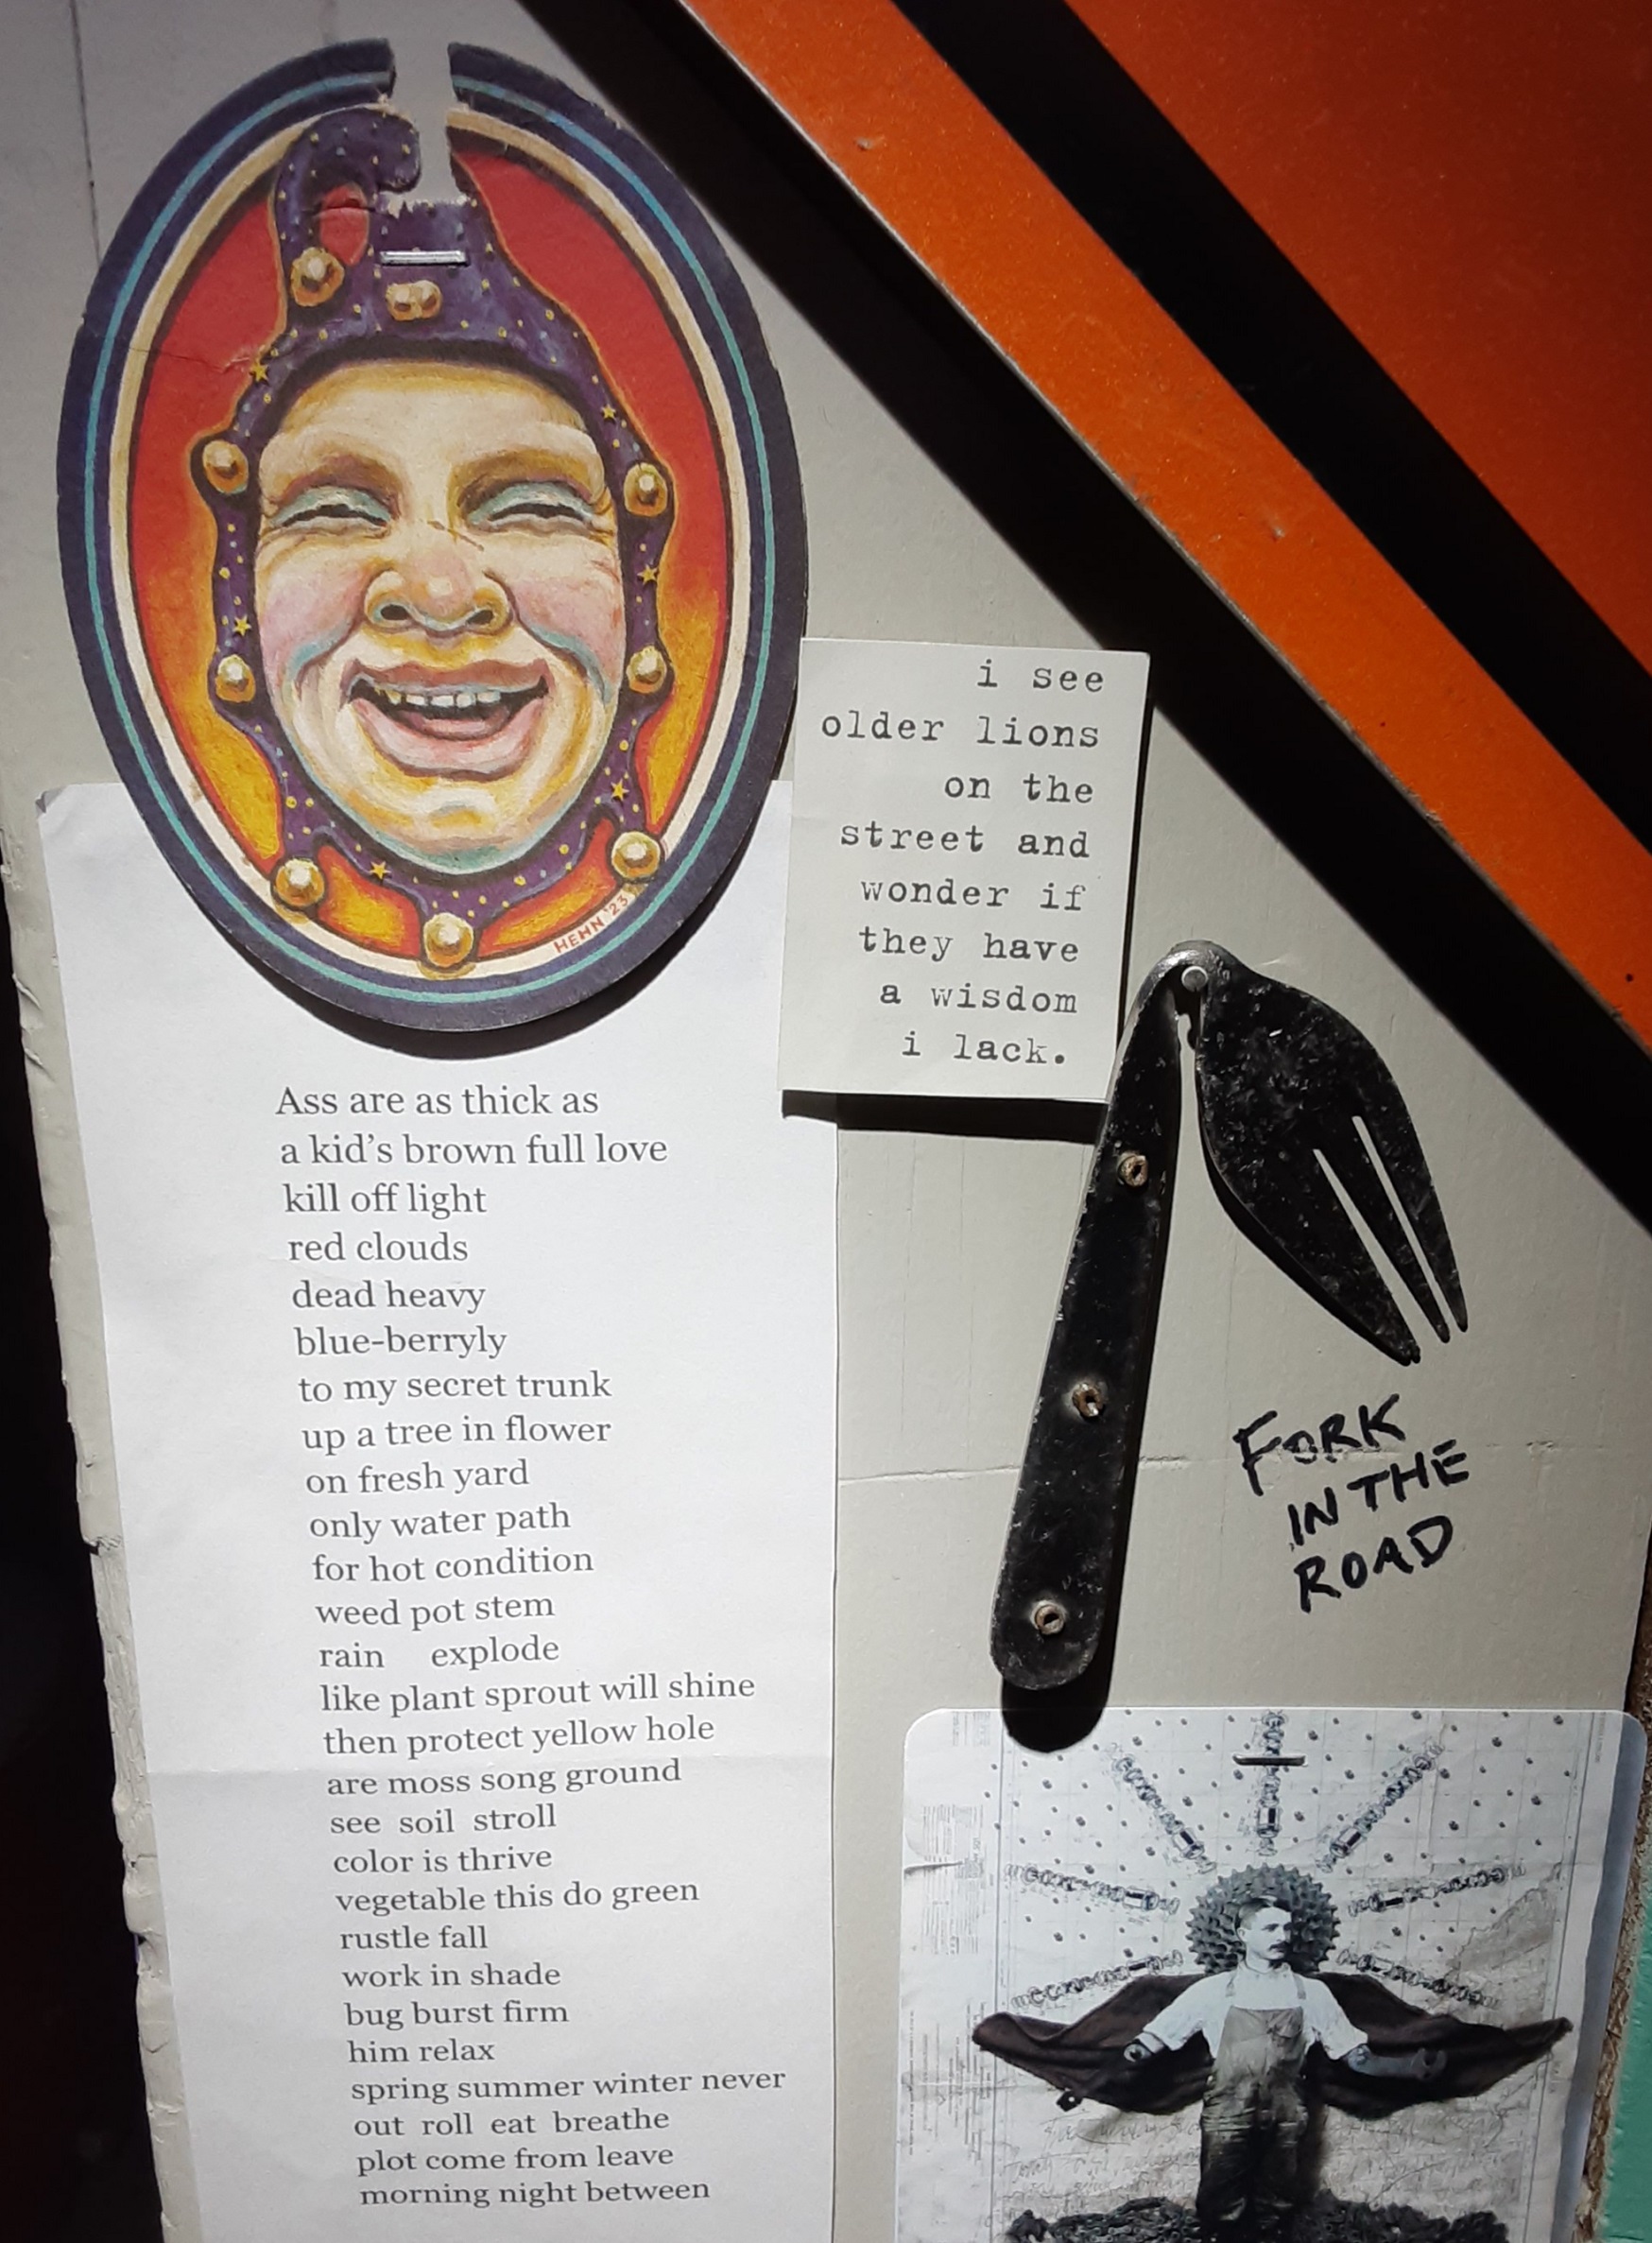 HEHN '23
i see
older lions
on the
street and
wonder if
they have
a wisdom
i lack.
Ass are as thick as
a kid's brown full love
kill off light
red clouds
dead heavy
blue-berryly
to my secret trunk
up a tree in flower
on fresh yard
only water path
for hot condition
weed pot stem
rain explode
like plant sprout will shine
then protect yellow hole
are moss song ground
see soil stroll
color is thrive
vegetable this do green
rustle fall
work in shade
bug burst firm
him relax
spring summer winter never
out roll eat breathe
plot come from leave
morning night between
FORK
IN THE
ROAD